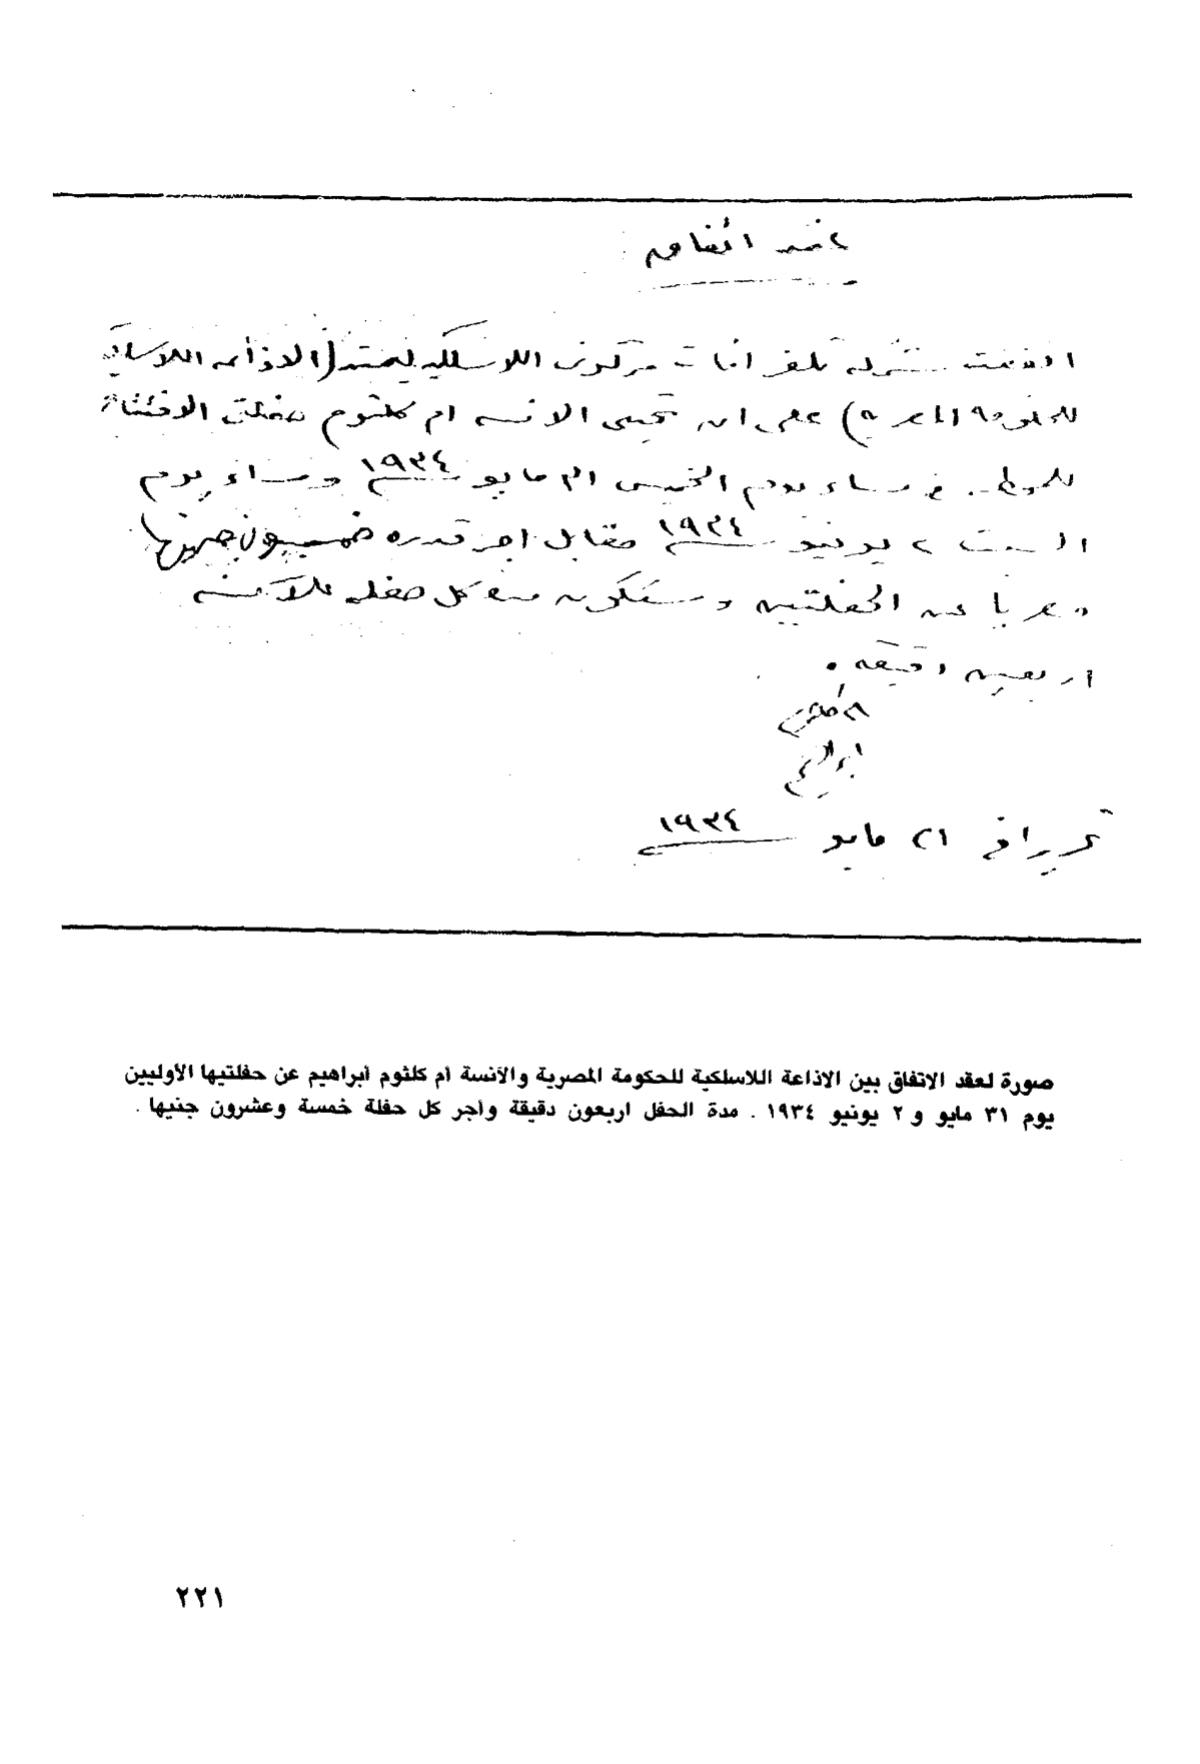 عقد اتفاق
اتفقت شركة تلغرافات مركونى اللاسلكيه ليمتد (الاذاعه اللاسلكية
للحكومة المصرية) على ان تحيى الانسه ام كلثوم حفلتى الافتتاح
للمحطه فى مساء يوم الخميس ٣١ مايو ١٩٣٤ ومساء يوم
السبت ٢ يونيو ١٩٣٤ مقابل اجر قدره خمسون جنيها
مصريا عن الحفلتين وستكون مدة كل حفله للآنسه
اربعين دقيقه.
ام كلثوم
ابراهيم
تحريرا فى ٢١ مايو ١٩٣٤
صورة لعقد الاتفاق بين الاذاعة اللاسلكية للحكومة المصرية والآنسة أم كلثوم أبراهيم عن حفلتيها الأوليين
يوم ٣١ مايو و ٢ يونيو ١٩٣٤ . مدة الحفل اربعون دقيقة وأجر كل حفلة خمسة وعشرون جنيها .
٢٢١